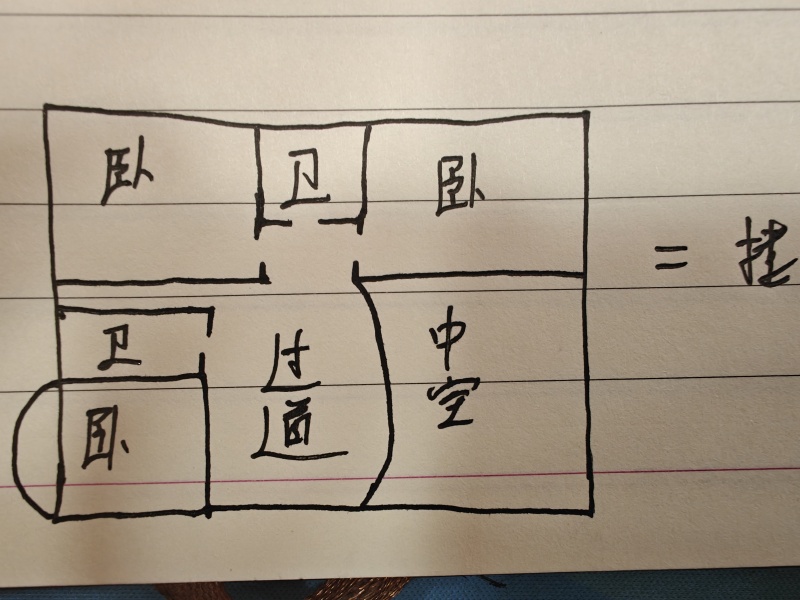 卧 卫 卧
二楼
卫
过道
中空
卧